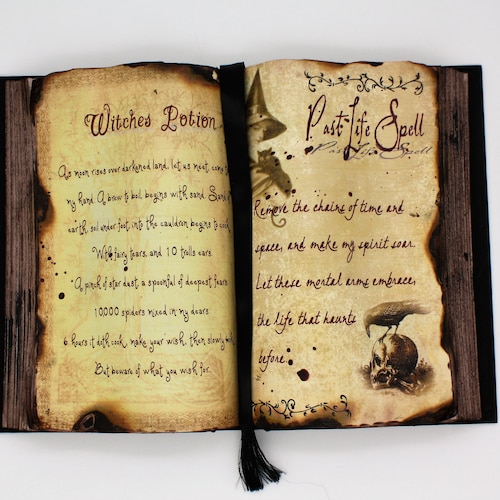 Witches Potion
As moon rises over darkened land, let us meet,
my hand. A brew to boil begins with sand.
earth, soil under foot, into the cauldron begins to
With fairy tears, and 10 trolls ears.
A pinch of star dust a spoonful of deepest fears
10,000 spiders mixed in my dears
6 hours it doth cook, make your wish, then slowly
But beware of what you wish for.
Past Life Spell
Past Life Spell
Remove the chains of time and
space, and make my spirit soar.
Let these mortal arms embrace,
the life that haunts
before.